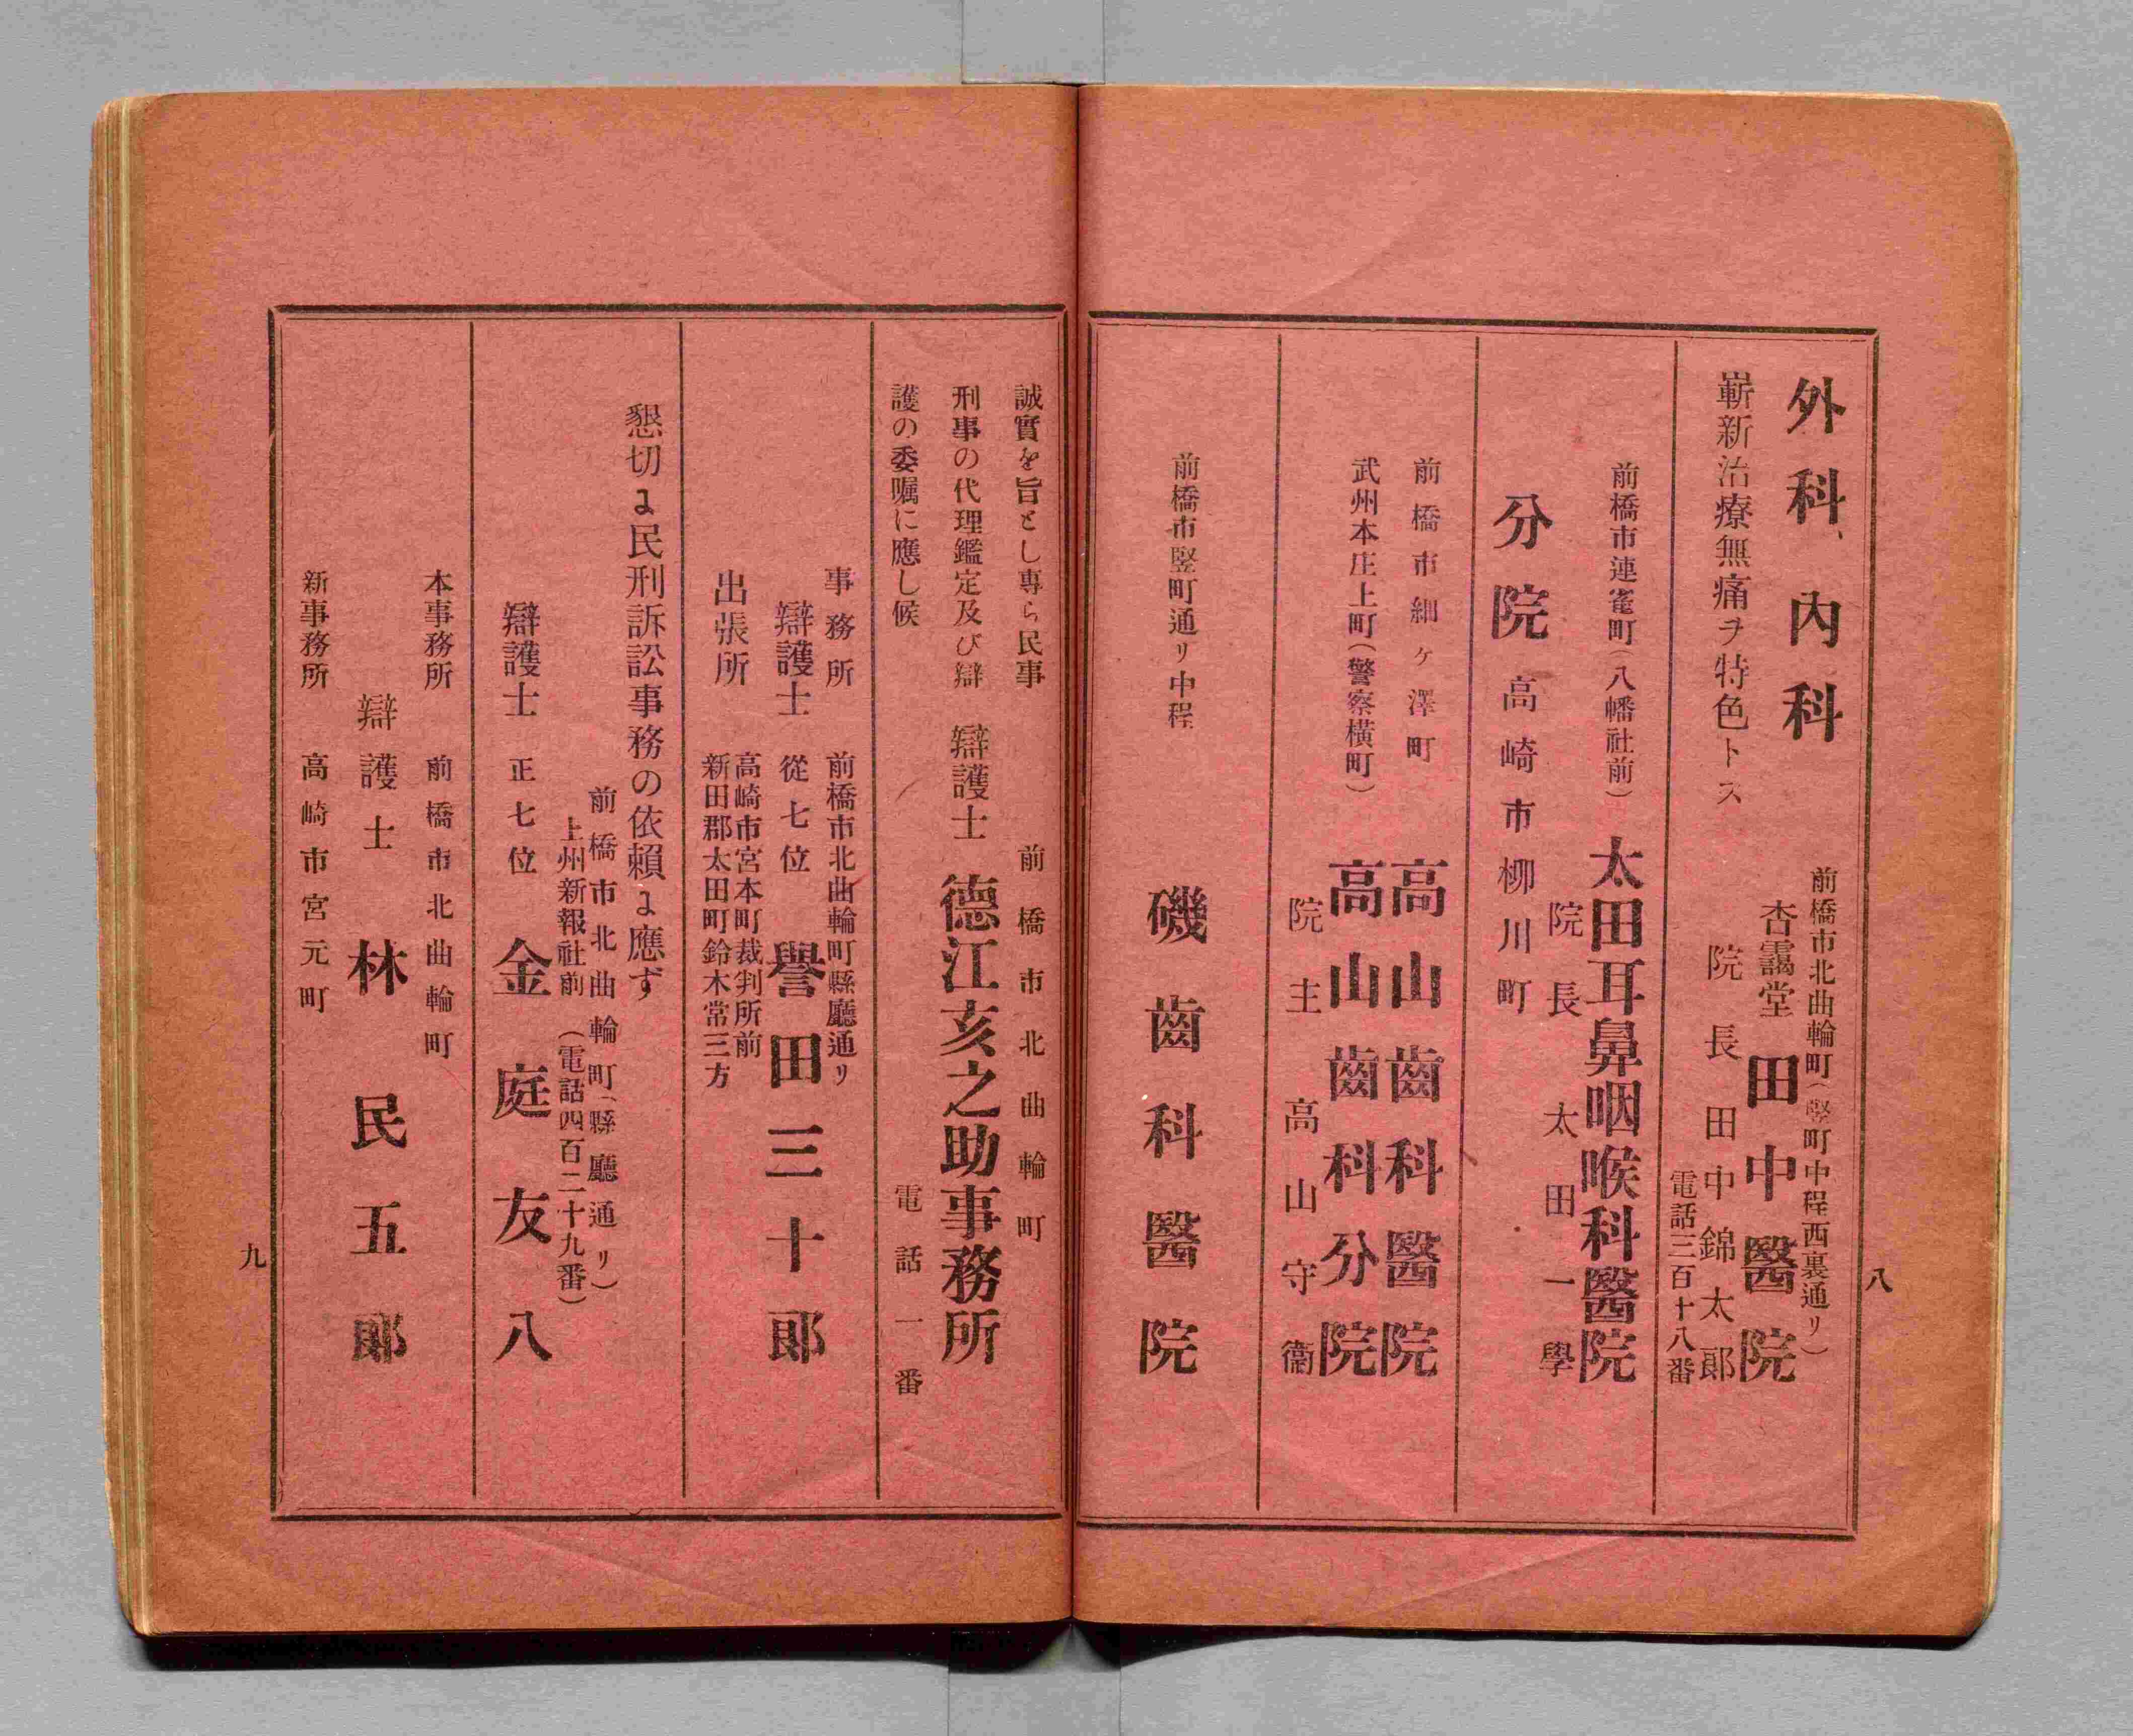 外科、內科
嶄新治療無痛ヲ特色トス
前橋市北曲輪町(竪町中程西裏通リ)
杏靄堂 田中醫院
院長 田中錦太郞
電話三百十八番
前橋市連雀町(八幡社前)
太田耳鼻咽喉科醫院
院長 太田一學
分院 高崎市柳川町
前橋市細ケ澤町 高山齒科醫院
武州本庄上町(警察橫町) 高山齒科分院
院主 高山守衞
前橋市竪町通リ中程 磯齒科醫院
八
誠實を旨とし專ら民事
刑事の代理鑑定及び辯
護の委囑に應し候
前橋市北曲輪町
辯護士 德江亥之助事務所
電話一番
事務所 前橋市北曲輪町縣廳通リ
辯護士 從七位 譽田三十郞
出張所 高崎市宮本町裁判所前
新田郡太田町鈴木常三方
懇切に民刑訴訟事務の依賴に應ず
前橋市北曲輪町(縣廳通リ)
上州新報社前 (電話四百二十九番)
辯護士 正七位 金庭友八
本事務所 前橋市北曲輪町
辯護士 林民五郞
新事務所 高崎市宮元町
九